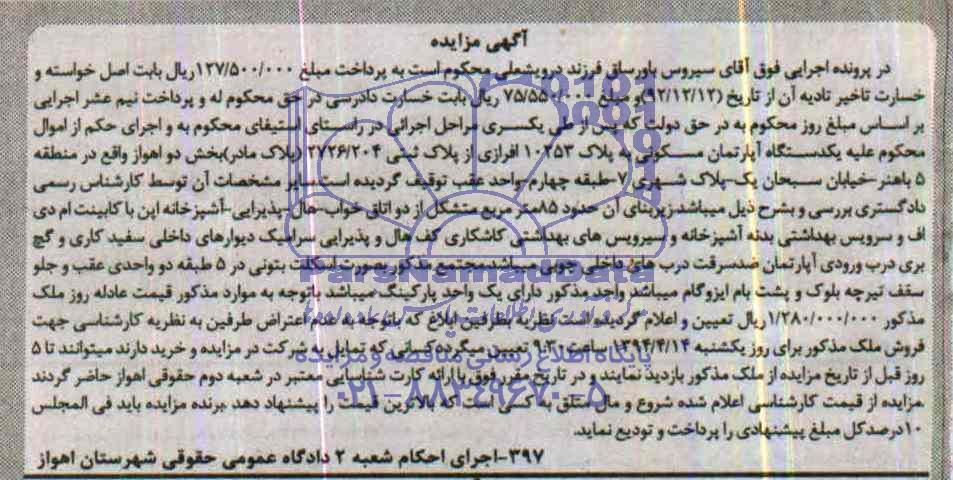 آگهی مزایده
در پرونده اجرایی فوق آقای سیروس یاورساق فرزند درویشعلی محکوم است به پرداخت مبلغ ۱۲۷/۵۰۰/۰۰۰ ریال بابت اصل خواسته و
خسارت تاخیر تادیه آن از تاریخ (۹۲/۱۲/۱۲) و مبلغ ریال بابت خسارت دادرسی در حق محکوم له و پرداخت نیم عشر اجرایی
بر اساس مبلغ روز محکوم به در حق دولت که پس از طی یکسری مراحل اجرائی در راستای استیفای محکوم به و اجرای حکم از اموال
محکوم علیه یکدستگاه آپارتمان مسکونی به پلاک ۱۰۲۵۳ افرازی از پلاک ثبتی ۲۷۲۶/۲۰۴ (پلاک مادر)بخش دو اهواز واقع در منطقه
۵ باهنر-خیابان سبحان یک-پلاک شهری ۷-طبقه چهارم-واحد عقب توقیف گردیده است سایر مشخصات آن توسط کارشناس رسمی
دادگستری بررسی و بشرح ذیل میباشد زیربنای آن حدود ۸۵متر مربع متشکل از دو اتاق خواب-هال-پذیرایی-آشپزخانه اپن با کابینت ام دی
اف و سرویس بهداشتی بدنه آشپزخانه و سیرویس های بهداشتی کاشکاری کف هال و پذیرایی سرامیک دیوارهای داخلی سفید کاری و گچ
بری درب ورودی آپارتمان ضدسرقت درب های داخلی چوبی میباشد مجتمع مذکور بصورت اسکلت بتونی در ۵ طبقه دو واحدی عقب و جلو
سقف تیرچه بلوک و پشت بام ایزوگام میباشد واحد مذکور دارای یک واحد پارکینگ میباشد باتوجه به موارد مذکور قیمت عادله روز ملک
مذکور ۱/۲۸۰/۰۰۰/۰۰۰ ریال تعیین و اعلام گردیده است نظریه بطرفین ابلاغ که باتوجه به عدم اعتراض طرفین به نظریه کارشناسی جهت
فروش ملک مذکور برای روز یکشنبه ۱۳۹۴/۴/۱۴ ساعت ۹:۳۰ تعیین میگردد کسانی که تمایل به شرکت در مزایده و خرید دارند میتوانند تا ۵
روز قبل از تاریخ مزایده از ملک مذکور بازدید نمایند و در تاریخ مقرر فوق با ارائه کارت شناسایی معتبر در شعبه دوم حقوقی اهواز حاضر گردند
مزایده از قیمت کارشناسی اعلام شده شروع و مال متعلق به کسی است که بالاترین قیمت را پیشنهاد دهد برنده مزایده باید فی المجلس
۱۰درصدکل مبلغ پیشنهادی را پرداخت و تودیع نماید.
۳۹۷-اجرای احکام شعبه ۲ دادگاه عمومی حقوقی شهرستان اهواز
ParsNamadData
پایگاه اطلاع رسانی مناقصه و مزایده
۰۲۱-۸۸۳۴۹۶۷۰-۵